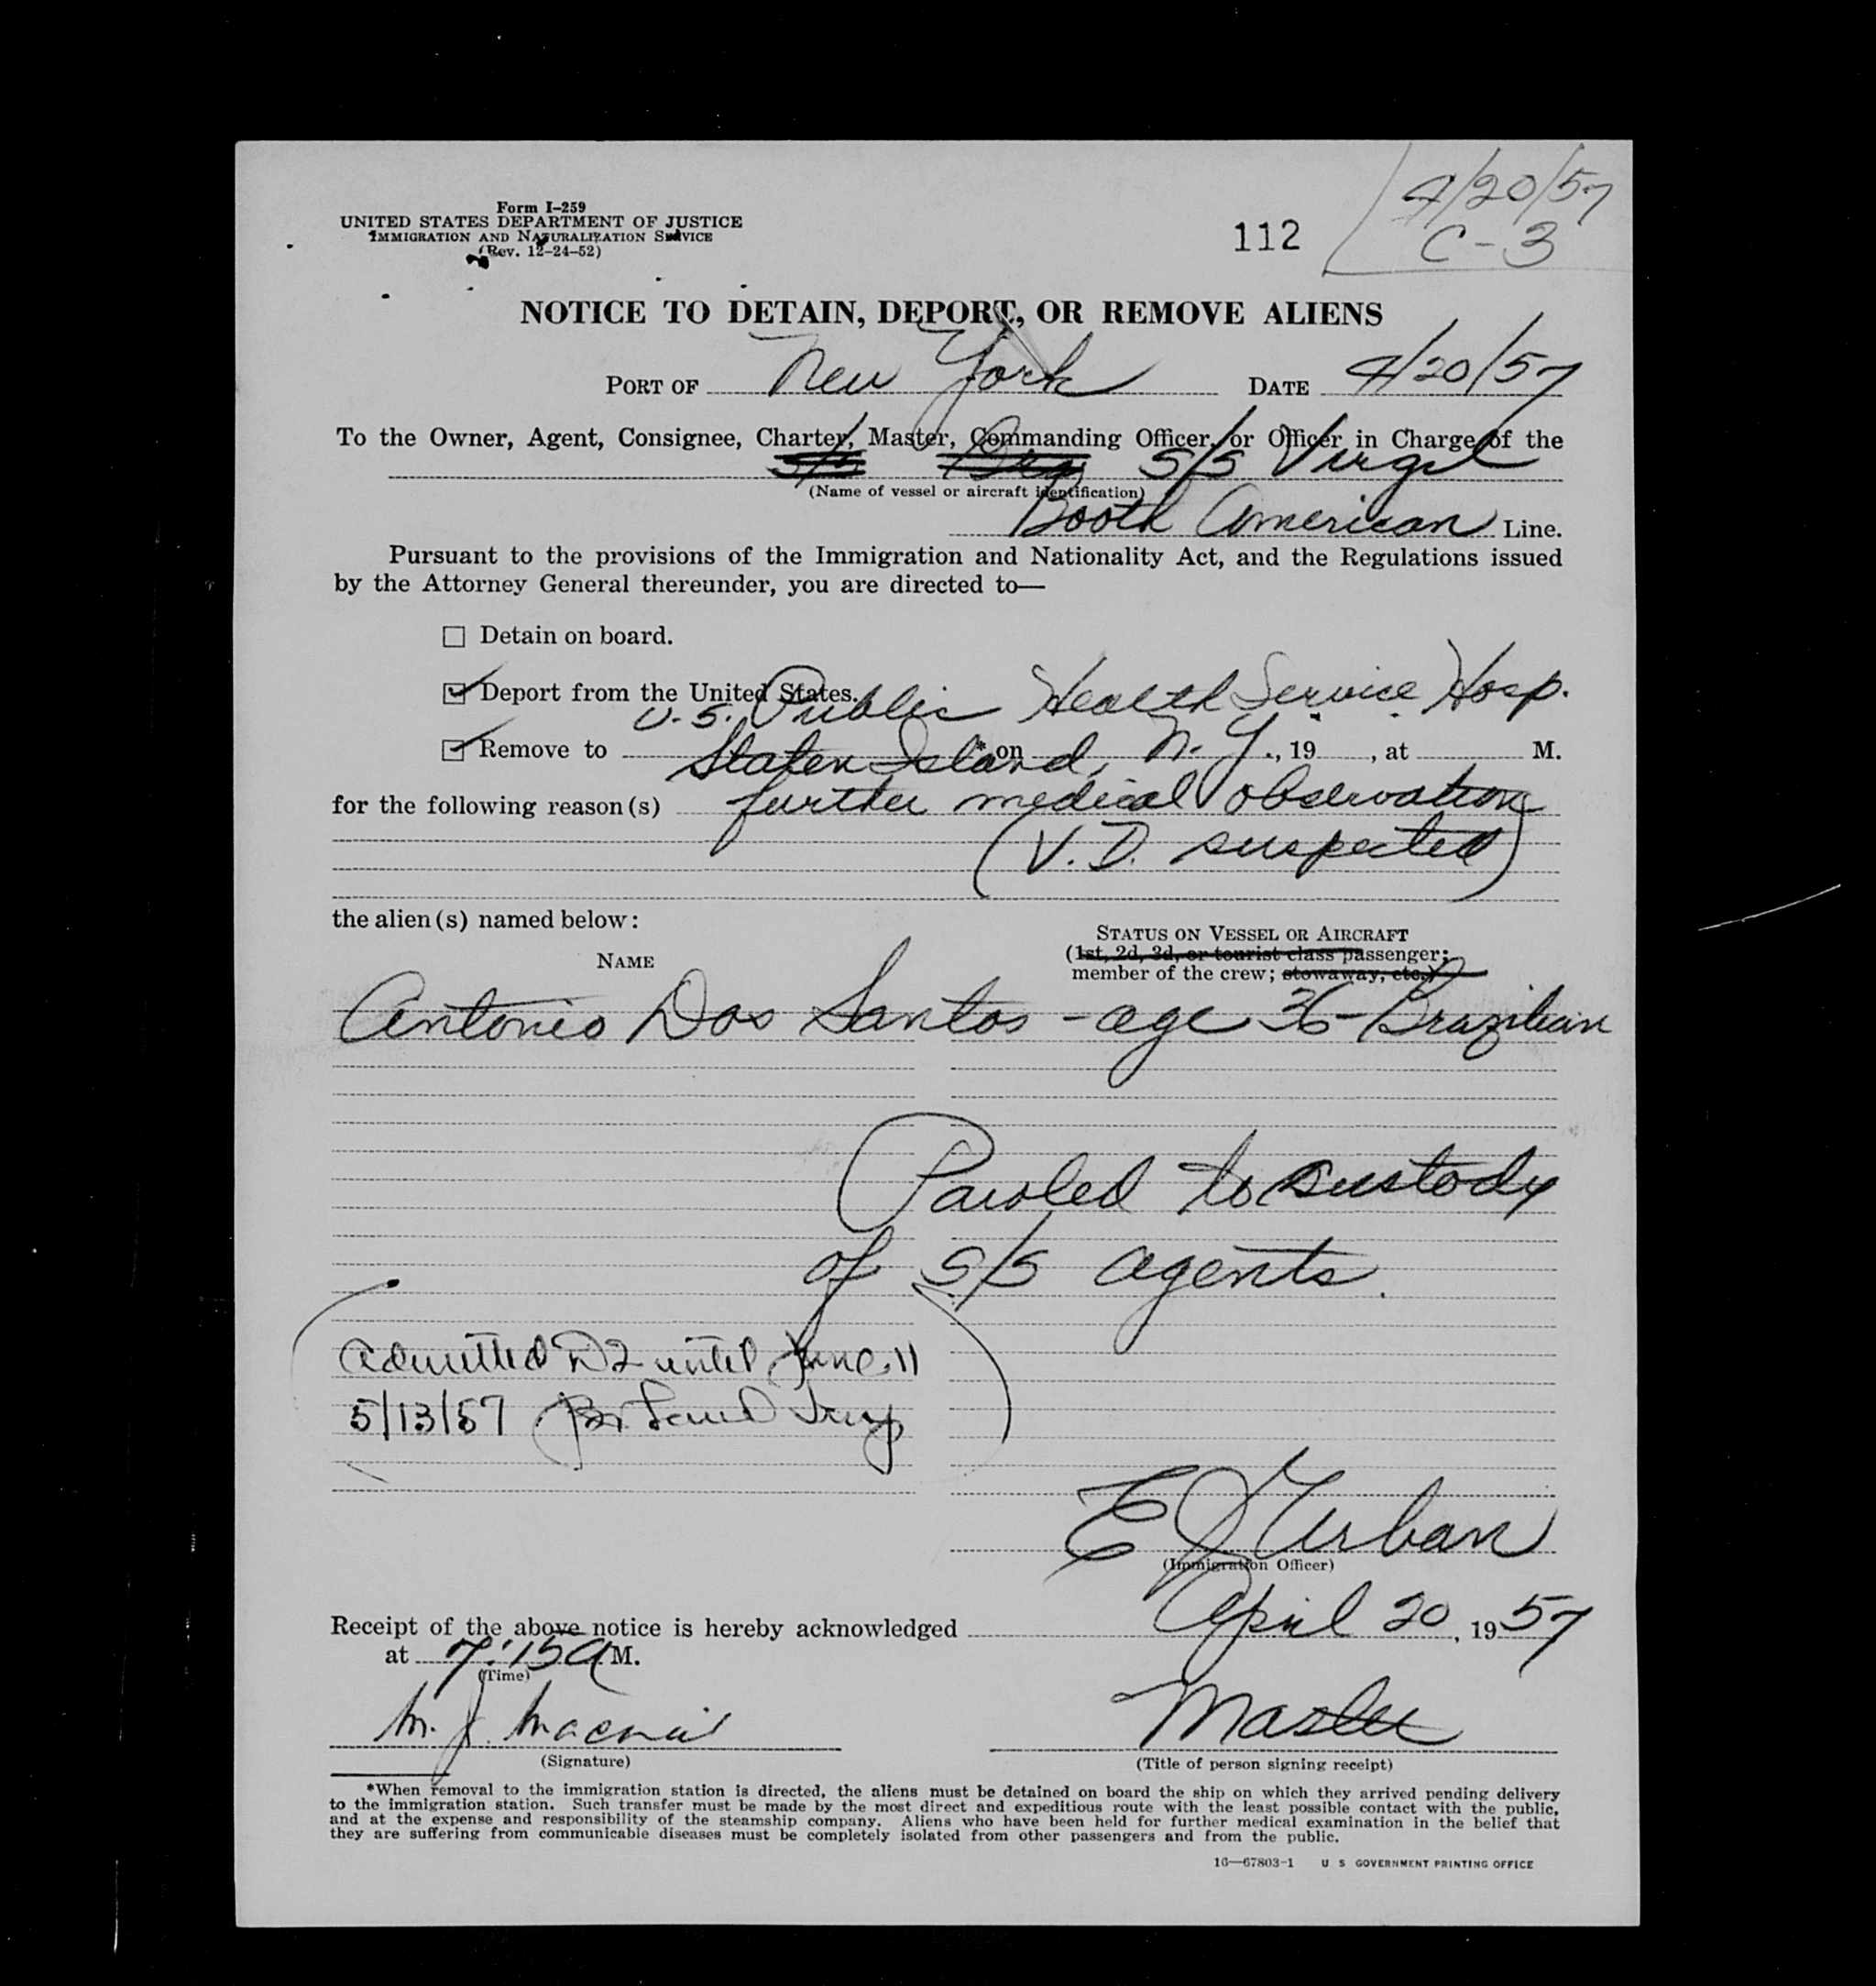 Form I-259
UNITED STATES DEPARTMENT OF JUSTICE
IMMIGRATION AND NATURALIZATION SERVICE
(Rev. 12-24-52)
112
4/20/57
C-3
NOTICE TO DETAIN, DEPORT, OR REMOVE ALIENS
PORT OF New York DATE 4/20/57
To the Owner, Agent, Consignee, Charter, Master, Commanding Officer, or Officer in Charge of the
S/S S/S Virgil
(Name of vessel or aircraft identification)
Booth American Line.
Pursuant to the provisions of the Immigration and Nationality Act, and the Regulations issued
by the Attorney General thereunder, you are directed to—
☐ Detain on board.
☑ Deport from the United States.
U.S. Public Health Service Hosp.
☑ Remove to Staten Island, N.Y. *on , 19 , at M.
for the following reason(s) further medical observation
(V.D. suspected)
the alien(s) named below:
NAME
STATUS ON VESSEL OR AIRCRAFT
(1st, 2d, 3d, or tourist class passenger;
member of the crew; stowaway, etc.)
Antonio Dos Santos - age 36 - Brazilian
Paroled to custody
of S/S agents.
Admitted D2 until June 11
5/13/57
E J Urban
(Immigration Officer)
Receipt of the above notice is hereby acknowledged April 20, 1957
at 7:15 A M.
(Time)
M. J. Macnair Master
(Signature) (Title of person signing receipt)
*When removal to the immigration station is directed, the aliens must be detained on board the ship on which they arrived pending delivery
to the immigration station. Such transfer must be made by the most direct and expeditious route with the least possible contact with the public,
and at the expense and responsibility of the steamship company. Aliens who have been held for further medical examination in the belief that
they are suffering from communicable diseases must be completely isolated from other passengers and from the public.
16—67803-1 U S GOVERNMENT PRINTING OFFICE